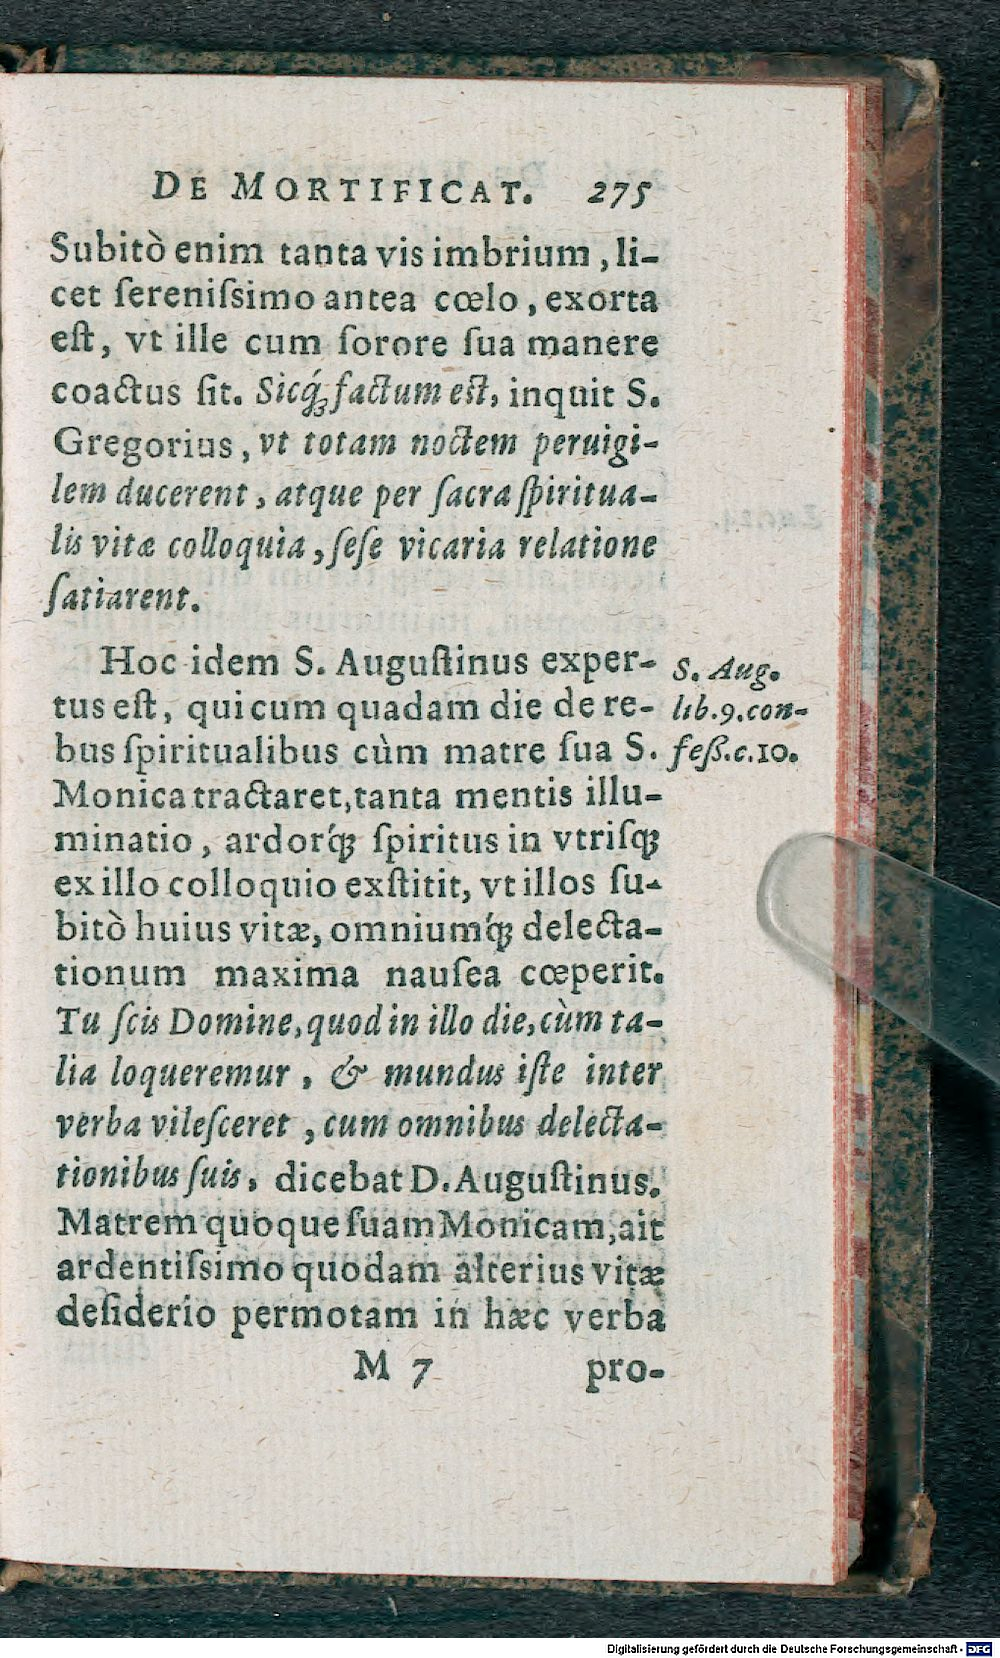 DE MORTIFICAT. 275
Subitò enim tanta vis imbrium, li-
cet ſereniſsimo antea cœlo, exorta
eſt, vt ille cum ſorore ſua manere
coactus ſit. Sicq́ꝫ factum eſt, inquit S.
Gregorius, vt totam noctem peruigi-
lem ducerent, atque per ſacra ſpiritua-
lis vitæ colloquia, ſeſe vicaria relatione
ſatiarent.
Hoc idem S. Auguſtinus exper-
tus eſt, qui cum quadam die de re-
bus ſpiritualibus cùm matre ſua S.
Monica tractaret, tanta mentis illu-
minatio, ardorq́ꝫ ſpiritus in vtriſqꝫ
ex illo colloquio exſtitit, vt illos ſu-
bitò huius vitæ, omniumq́ꝫ delecta-
tionum maxima nauſea cœperit.
Tu ſcis Domine, quod in illo die, cùm ta-
lia loqueremur, & mundus iſte inter
verba vileſceret, cum omnibus delecta-
tionibus ſuis, dicebat D. Auguſtinus.
Matrem quoque ſuam Monicam, ait
ardentiſsimo quodam alterius vitæ
deſiderio permotam in hæc verba
M 7 pro-
S. Aug.
lib.9.con-
feß.c.10.
Digitalisierung gefördert durch die Deutsche Forschungsgemeinschaft - DFG